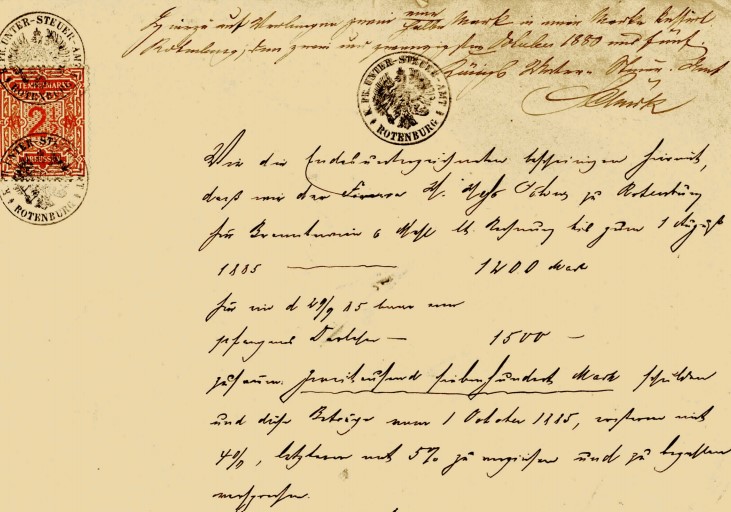 Hierzu auf Verlangen zwei eine halbe Mark in einer Marke kassirt
Rotenburg, den zwei und zwanzigsten Oktober 1880 und fünf.
Königl. Unter-Steuer-Amt
K. PR. UNTER-STEUER-AMT
ROTENBURG
STEMPELMARKE
2½
PREUSSEN
K. PR. UNTER-STEUER-AMT
ROTENBURG
K. PR. UNTER-STEUER-AMT
ROTENBURG
Wir die Endesunterzeichneten bescheinigen hiermit,
daß wir der Firma H. Heß Söhne zu Rotenburg
für Branntwein & Mehl lt. Rechnung bis zum 1 August
1885 — 1200 Mark
für ein d 29/9 85 baar em
pfangenes Darlehen — 1500 —
zusamm. zweitausend siebenhundert Mark schulden
und diese Beträge vom 1 October 1885, ersteren mit
4%, letzteren mit 5% zu verzinsen und zu bezahlen
versprechen.